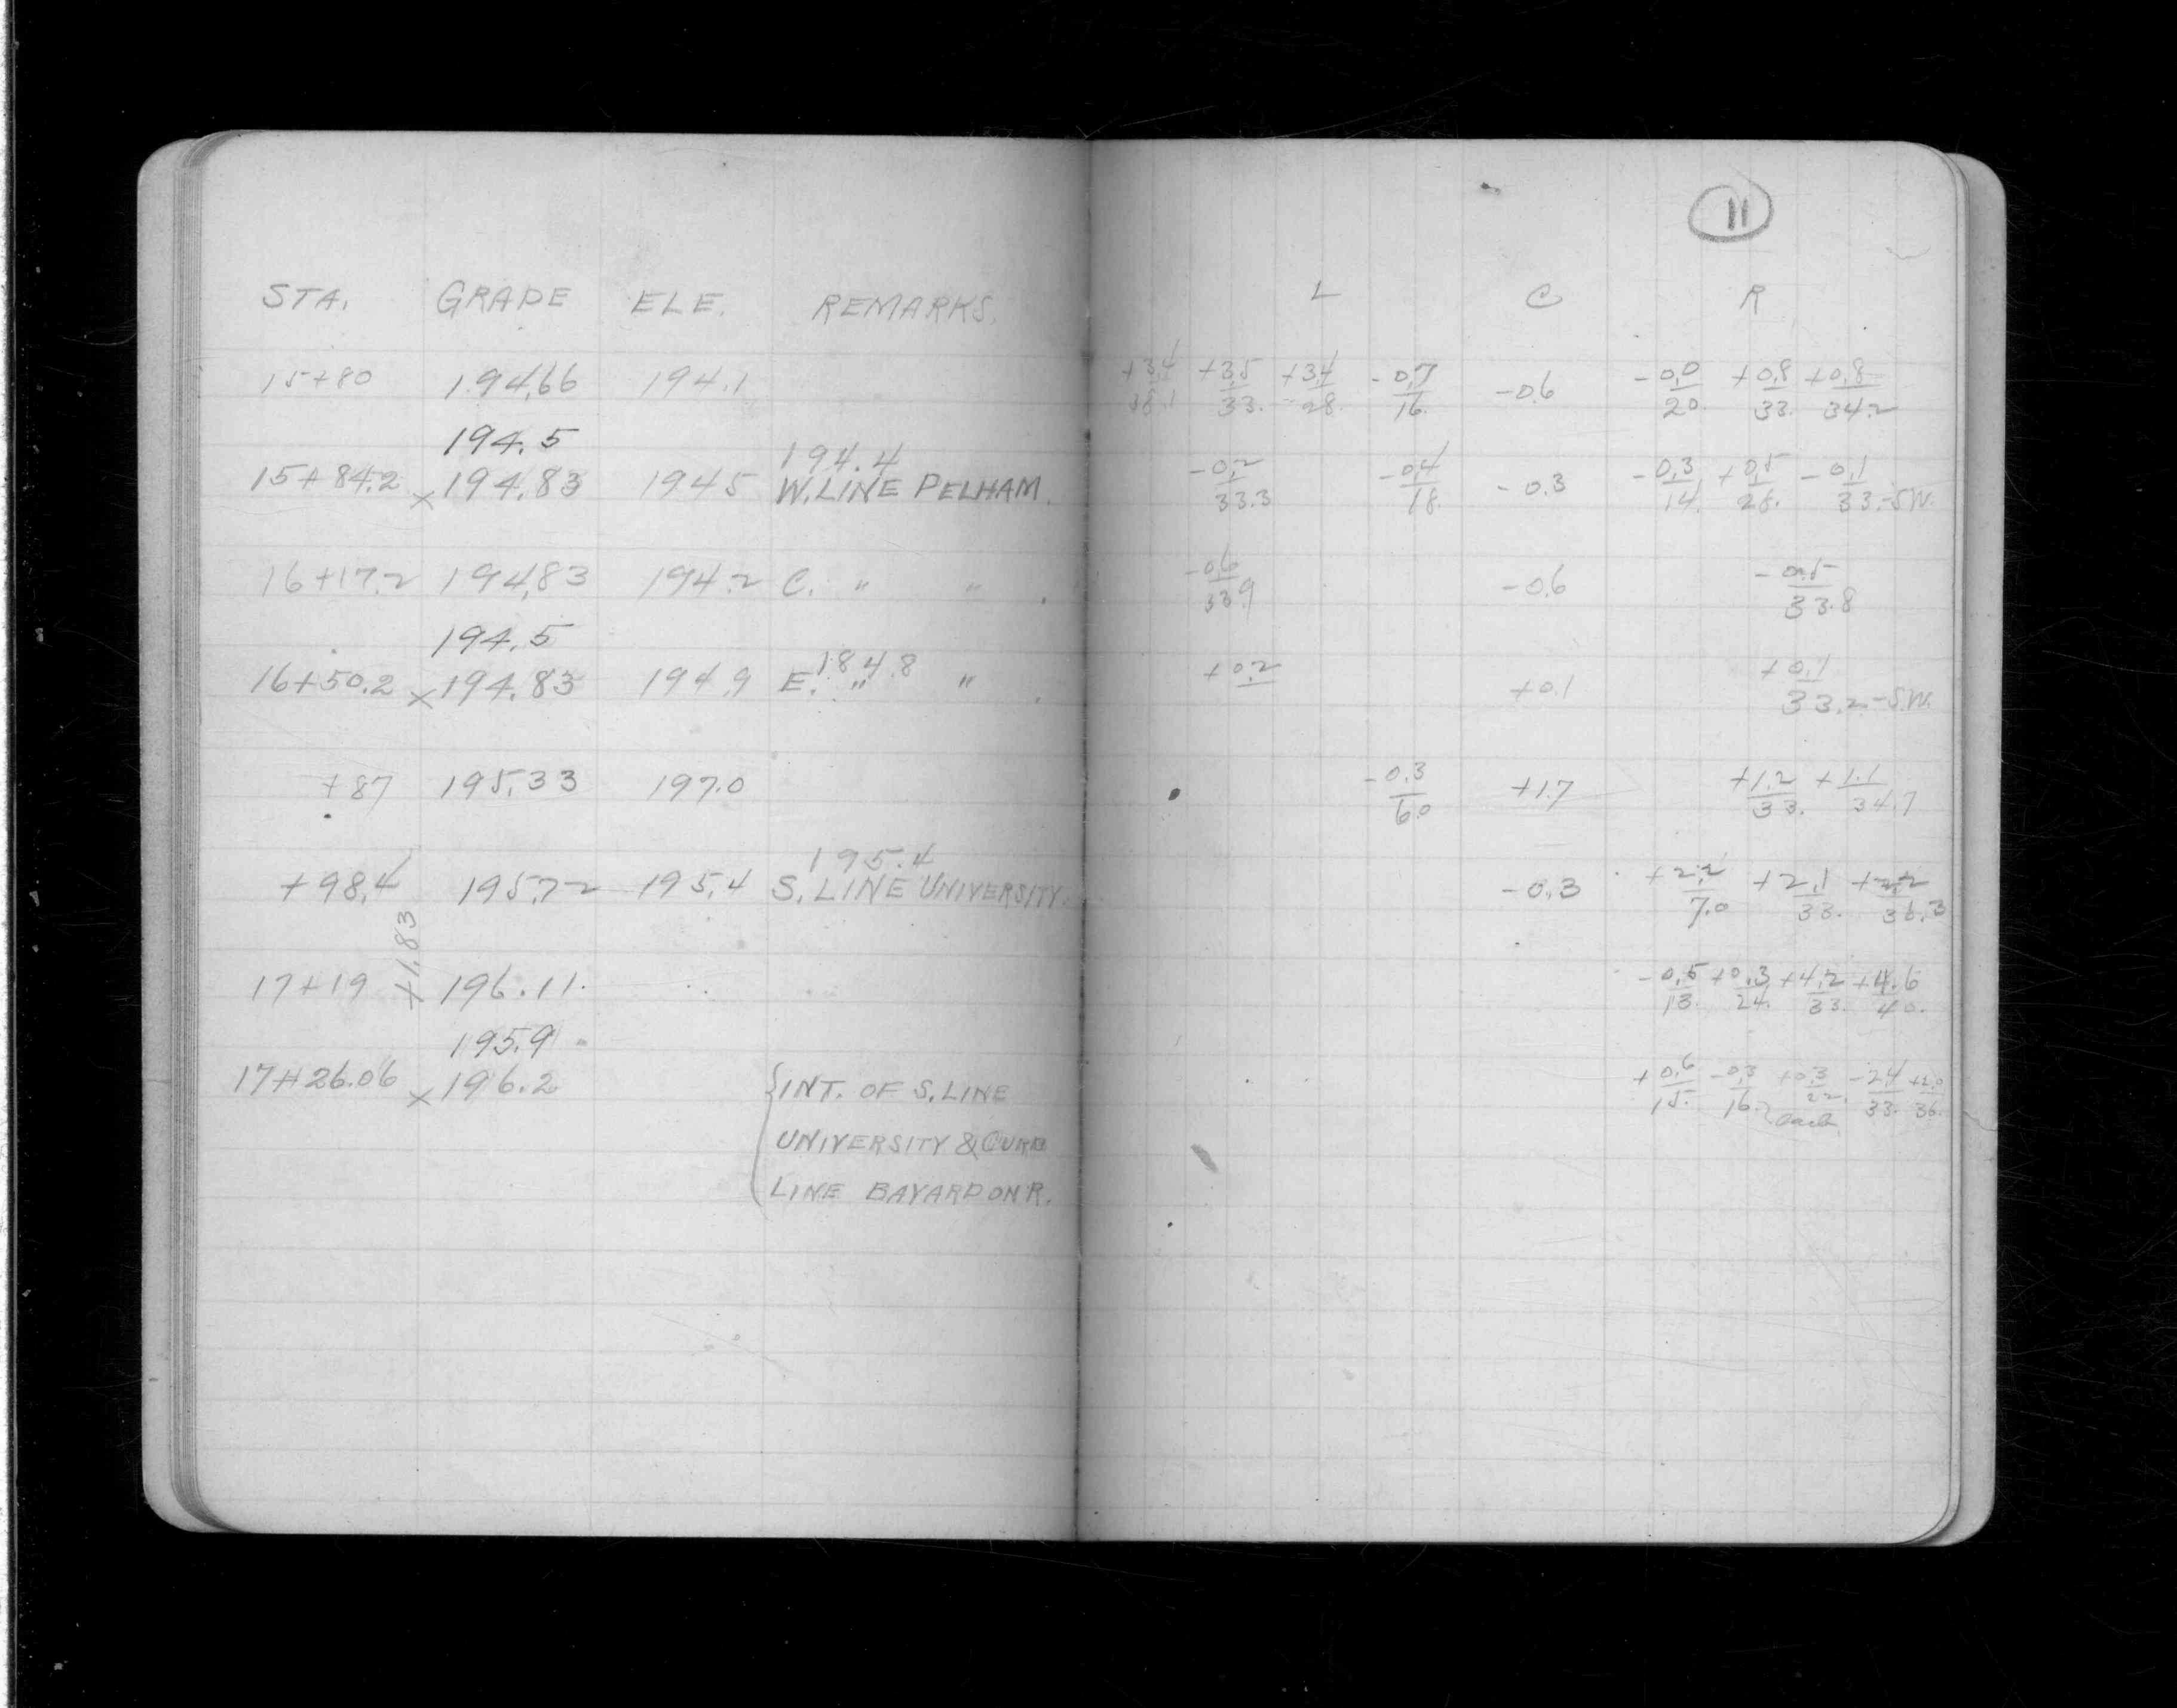 11
STA. GRADE ELE. REMARKS. L C R
+3.4 +3.5 +3.4 -0.7 -0.0 +0.8 +0.8
15+80 194.66 194.1 -0.6
33. 28. 16. 20. 33. 34.2
194.5
194.4
-0.2 -0.4 -0.3 +0.5 -0.1
15+84.2 x 194.83 194.5 W. LINE PELHAM. -0.3
33.3 18. 14. 28. 33.-S.W.
-0.6 -0.5
16+17.2 194.83 194.2 C. " " . -0.6
33.9 33.8
194.5
184.8
+0.2 +0.1
16+50.2 x 194.83 194.9 E. " " . +0.1
33.2-S.W.
-0.3 +1.2 +1.1
+87 195.33 197.0 +1.7
6.0 33. 34.7
195.4
+2.2 +2.1 +2.2
+98.4 195.72 195.4 S. LINE UNIVERSITY. -0.3
7.0 33. 36.3
+1.83
-0.5 +0.3 +4.2 +4.6
17+19 196.11.
13. 24. 33. 40.
195.9
+0.6 -0.3 +0.3 -2.4 +2.0
17+26.06 x 196.2 INT. OF S. LINE
15. 16. 22. 33. 36.
UNIVERSITY & CURB
LINE BAYARD ON R.